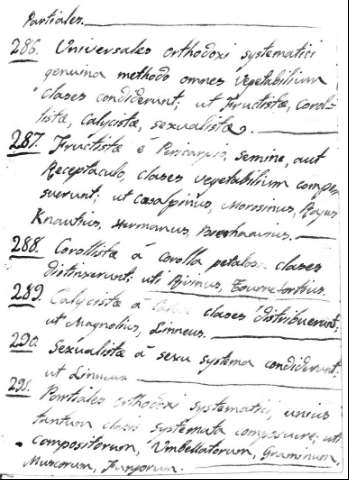 Partiales.
286. Universales orthodoxi systematici
genuina methodo omnes vegetabilium
clases condiderunt; ut Fructistæ, Corol-
listæ, Calycistæ, sexualistæ.
287. Fructistæ e Pericarpio, semine, aut
Receptaculo, clases vegetabilium compo
suerunt; ut Cæsalpinus, Morisinus, Rayus
Knautius, Hermanus, Boerhaavius.
288. Corollistæ á corolla petalosa clases
distinserunt; uti Rivinus, Tournefortius.
289. Calycistæ á clases distribuerunt;
ut Magnolius, Linneus.
290. Sexualistæ á sexu systema condiderunt;
ut Linneus
291. Partiales orthodoxi systematici, unius
tantum clasis systemata composuere; uti
Compositorum, Vmbellatorum, Graminum,
Muscorum, Fungorum.